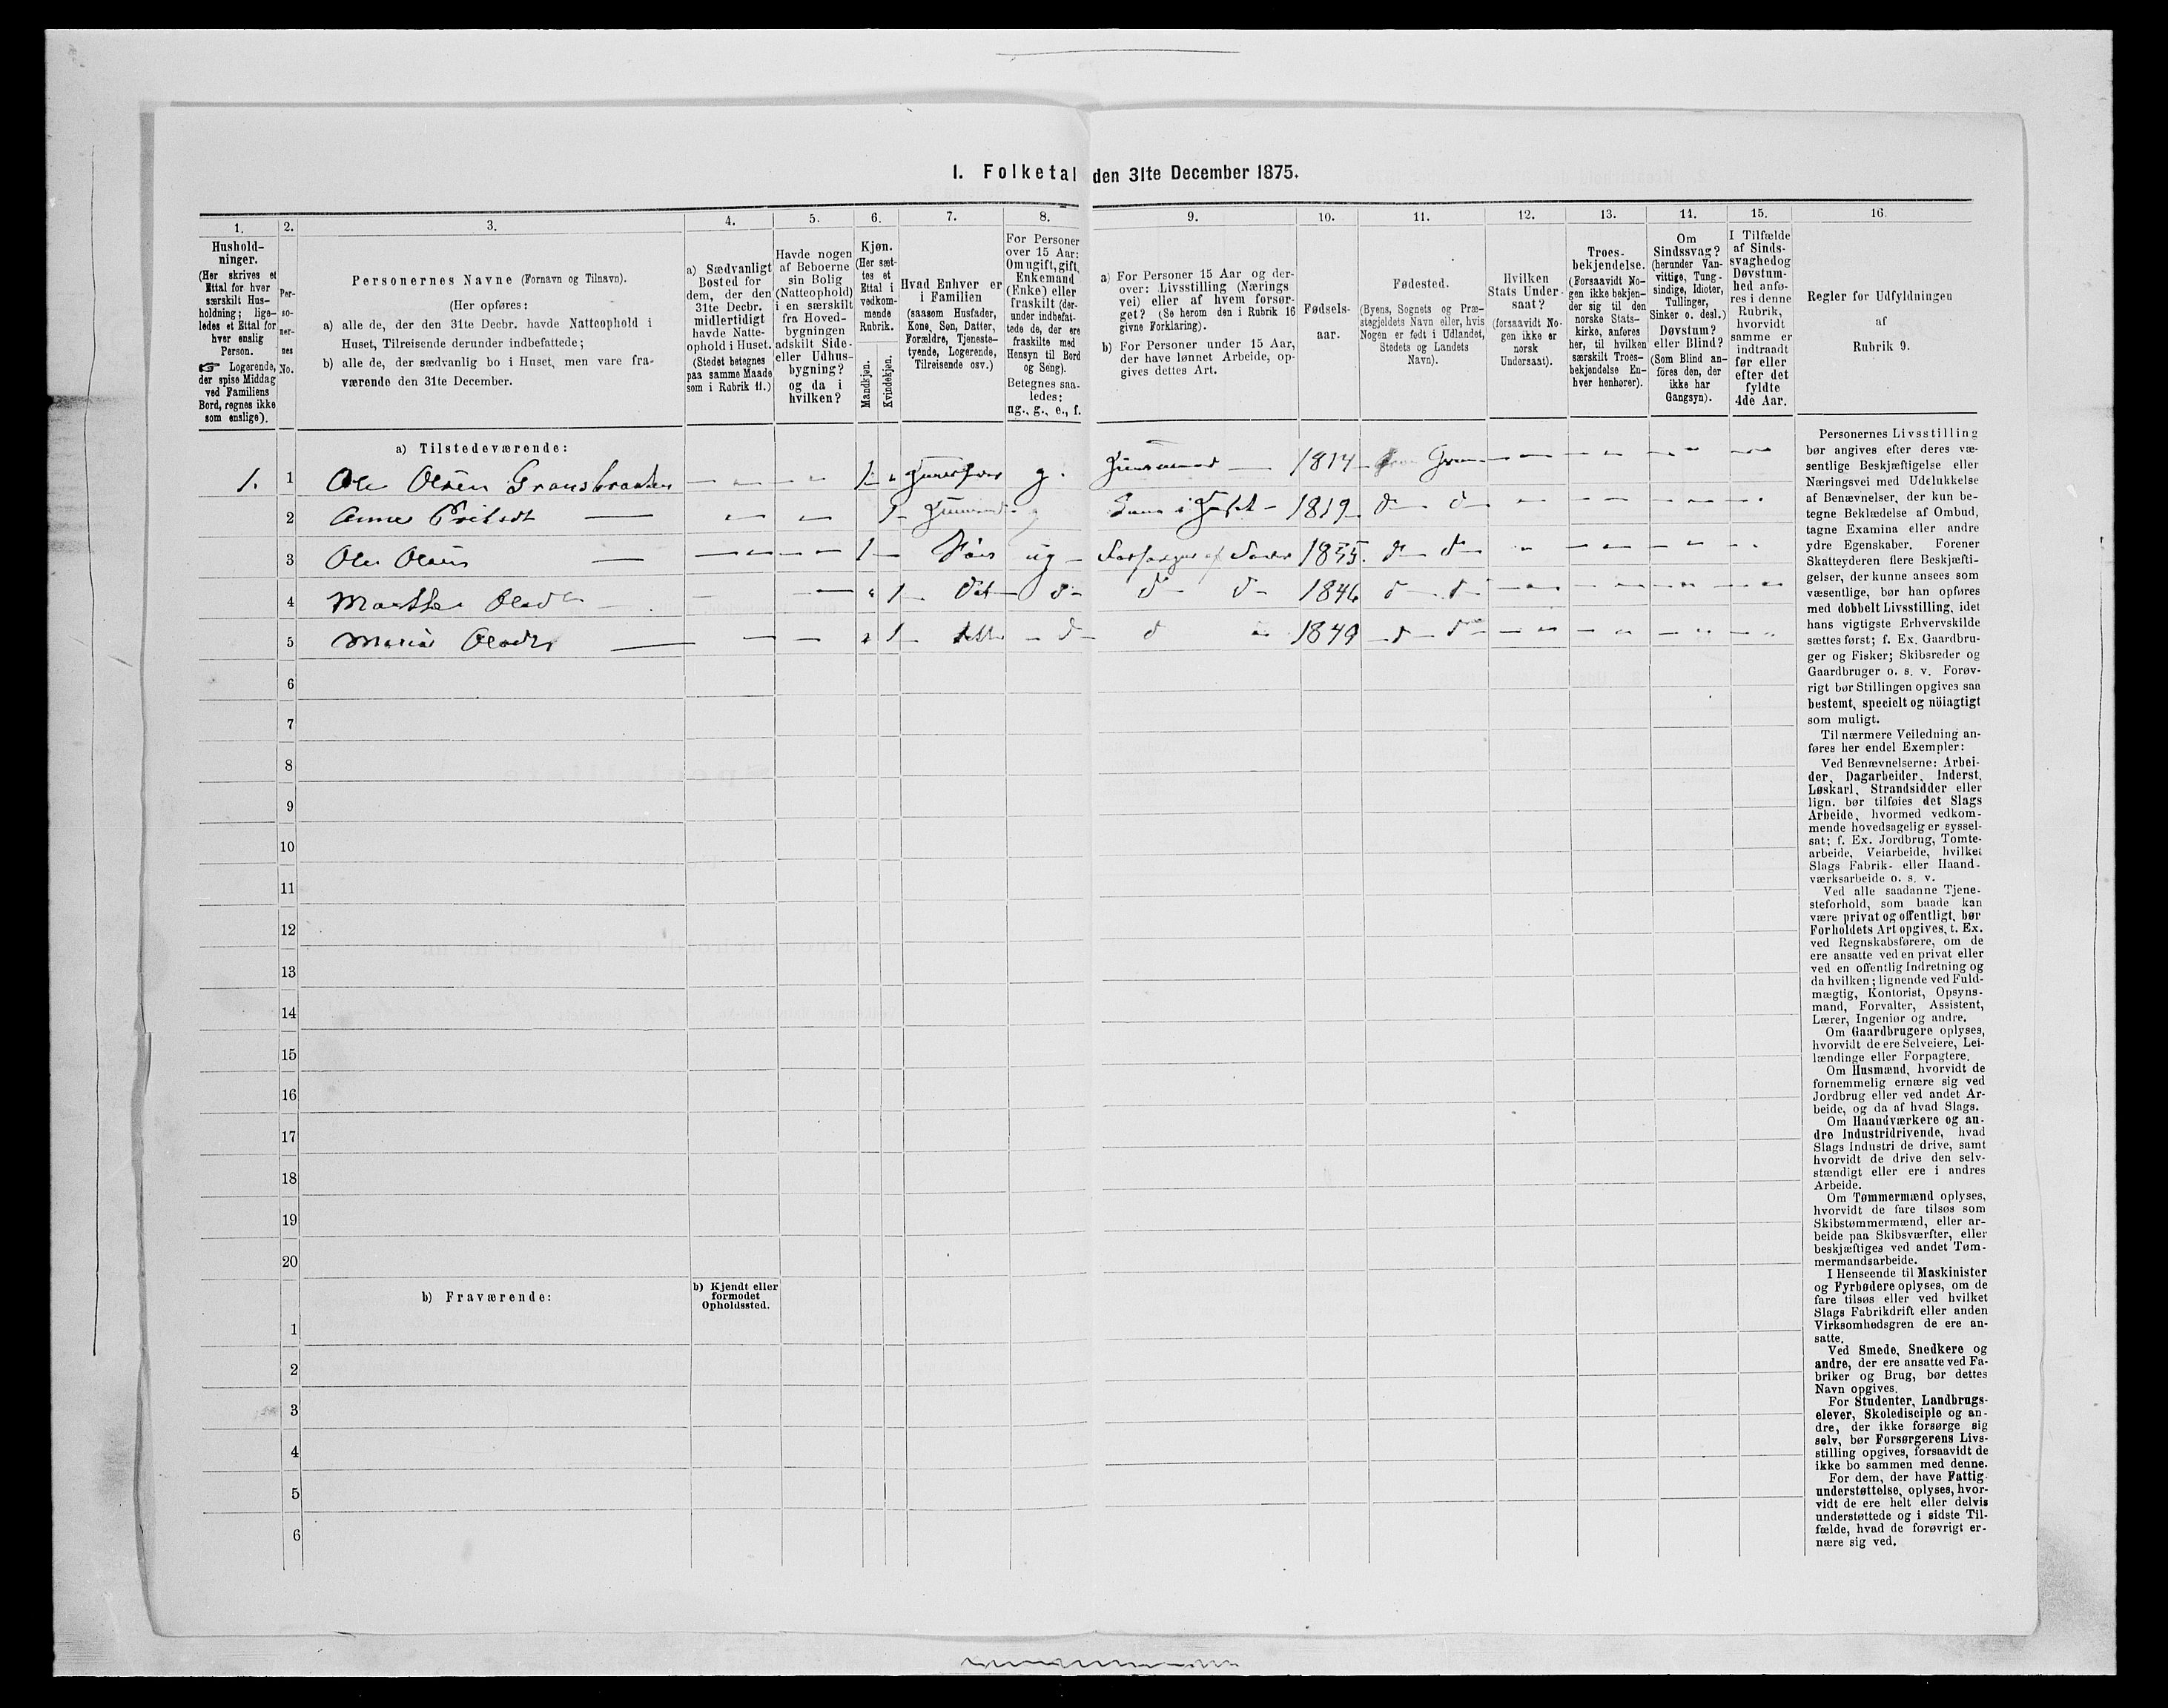 I. Folketal den 31te December 1875.
1.
Hushold-
ninger.
(Her skrives et
Ettal for hver
særskilt Hus-
holdning; lige-
ledes et Ettal for
hver enslig
Person.
☞ Logerende,
der spise Middag
ved Familiens
Bord, regnes ikke
som enslige).
2.
Per-
so-
ner-
nes
No.
3.
Personernes Navne (Fornavn og Tilnavn).
(Her opføres:
a) alle de, der den 31te Decbr. havde Natteophold i
Huset, Tilreisende derunder indbefattede;
b) alle de, der sædvanlig bo i Huset, men vare fra-
værende den 31te December.
4.
a) Sædvanligt
Bosted for
dem, der den
31te Decbr.
midlertidigt
havde Natte-
ophold i Huset.
(Stedet betegnes
paa samme Maade
som i Rubrik 11.)
5.
Havde nogen
af Beboerne
sin Bolig
(Natteophold)
i en særskilt
fra Hoved-
bygningen
adskilt Side-
eller Udhus-
bygning?
og da i
hvilken?
6.
Kjøn.
(Her sæt-
tes et
Ettal i
vedkom-
mende
Rubrik.
Mandkjøn.
Kvindekjøn.
7.
Hvad Enhver er
i Familien
(saasom Husfader,
Kone, Søn, Datter,
Forældre, Tjeneste-
tyende, Logerende,
Tilreisende osv.)
8.
For Personer
over 15 Aar:
Om ugift, gift,
Enkemand
(Enke) eller
fraskilt (der-
under indbefat-
tede de, der ere
fraskilte med
Hensyn til Bord
og Seng).
Betegnes saa-
ledes:
ug., g., e., f.
9.
a) For Personer 15 Aar og der-
over: Livsstilling (Nærings
vei) eller af hvem forsør-
get? (Se herom den i Rubrik 16
givne Forklaring).
b) For Personer under 15 Aar,
der have lønnet Arbeide, op-
gives dettes Art.
10.
Fødsels-
aar.
11.
Fødested.
(Byens, Sognets og Præ-
stegjeldets Navn eller, hvis
Nogen er født i Udlandet,
Stedets og Landets
Navn).
12.
Hvilken
Stats Under-
saat?
(forsaavidt No-
gen ikke er
norsk
Undersaat).
13.
Troes-
bekjendelse.
(Forsaavidt No-
gen ikke bekjen-
der sig til den
norske Stats-
kirke, anføres
her, til hvilken
særskilt Troes-
bekjendelse En-
hver henhører).
14.
Om
Sindssvag?
(herunder Van-
vittige, Tung-
sindige, Idioter,
Tullinger,
Sinker o. desl.)
Døvstum?
eller Blind?
(Som Blind an-
føres den, der
ikke har
Gangsyn).
15.
I Tilfælde
af Sinds-
svaghed og
Døvstum-
hed anfø-
res i denne
Rubrik,
hvorvidt
samme er
indtraadt
før eller
efter det
fyldte
4de Aar.
16.
Regler for Udfyldningen
af
Rubrik 9.
a) Tilstedeværende:
1. 1 Ole Olsen 1 g. 1814
2 Anne 1 1819 d d
3 Ole Olsen 1 Søn ug 1855 d d
4 Marthe Olsd 1 Dat d d d 1846 d d
5 Maria Olsdtr 1 d d 1849 d d
6
7
8
9
10
11
12
13
14
15
16
17
18
19
20
b) Fraværende:
b) Kjendt eller
formodet
Opholdssted.
1
2
3
4
5
6
Personernes Livsstilling
bør angives efter deres væ-
sentlige Beskjæftigelse eller
Næringsvei med Udelukkelse
af Benævnelser, der kun be-
tegne Beklædelse af Ombud,
tagne Examina eller andre
ydre Egenskaber. Forener
Skatteyderen flere Beskjæfti-
gelser, der kunne ansees som
væsentlige, bør han opføres
med dobbelt Livsstilling, idet
hans vigtigste Erhvervskilde
sættes først; f. Ex. Gaardbru-
ger og Fisker; Skibsreder og
Gaardbruger o. s. v. Forøv-
rigt bør Stillingen opgives saa
bestemt, specielt og nöiagtigt
som muligt.
Til nærmere Veiledning an-
føres her endel Exempler:
Ved Benævnelserne: Arbei-
der, Dagarbeider, Inderst,
Løskarl, Strandsidder eller
lign. bør tilføies det Slags
Arbeide, hvormed vedkom-
mende hovedsagelig er syssel-
sat; f. Ex. Jordbrug, Tomte-
arbeide, Veiarbeide, hvilket
Slags Fabrik- eller Haand-
værksarbeide o. s. v.
Ved alle saadanne Tjene-
steforhold, som baade kan
være privat og offentligt, bør
Forholdets Art opgives, t. Ex.
ved Regnskabsførere, om de
ere ansatte ved en privat eller
ved en offentlig Indretning og
da hvilken; lignende ved Fuld-
mægtig, Kontorist, Opsyns-
mand, Forvalter, Assistent,
Lærer, Ingeniør og andre.
Om Gaardbrugere oplyses,
hvorvidt de ere Selveiere, Lei-
lændinge eller Forpagtere.
Om Husmænd, hvorvidt de
fornemmelig ernære sig ved
Jordbrug eller ved andet Ar-
beide, og da af hvad Slags.
Om Haandværkere og an-
dre Industridrivende, hvad
Slags Industri de drive, samt
hvorvidt de drive den selv-
stændigt eller ere i andres
Arbeide.
Om Tømmermænd oplyses,
hvorvidt de fare tilsøs som
Skibstømmermænd, eller ar-
beide paa Skibsværfter, eller
beskjæftiges ved andet Tøm-
mermandsarbeide.
I Henseende til Maskinister
og Fyrbødere oplyses, om de
fare tilsøs eller ved hvilket
Slags Fabrikdrift eller anden
Virksomhedsgren de ere an-
satte.
Ved Smede, Snedkere og
andre, der ere ansatte ved Fa-
briker og Brug, bør dettes
Navn opgives.
For Studenter, Landbrugs-
elever, Skoledisciple og an-
dre, der ikke forsørge sig
selv, bør Forsørgerens Livs-
stilling opgives, forsaavidt de
ikke bo sammen med denne.
For dem, der have Fattig-
understøttelse, oplyses, hvor-
vidt de ere helt eller delvis
understøttede og i sidste Til-
fælde, hvad de forøvrigt er-
nære sig ved.